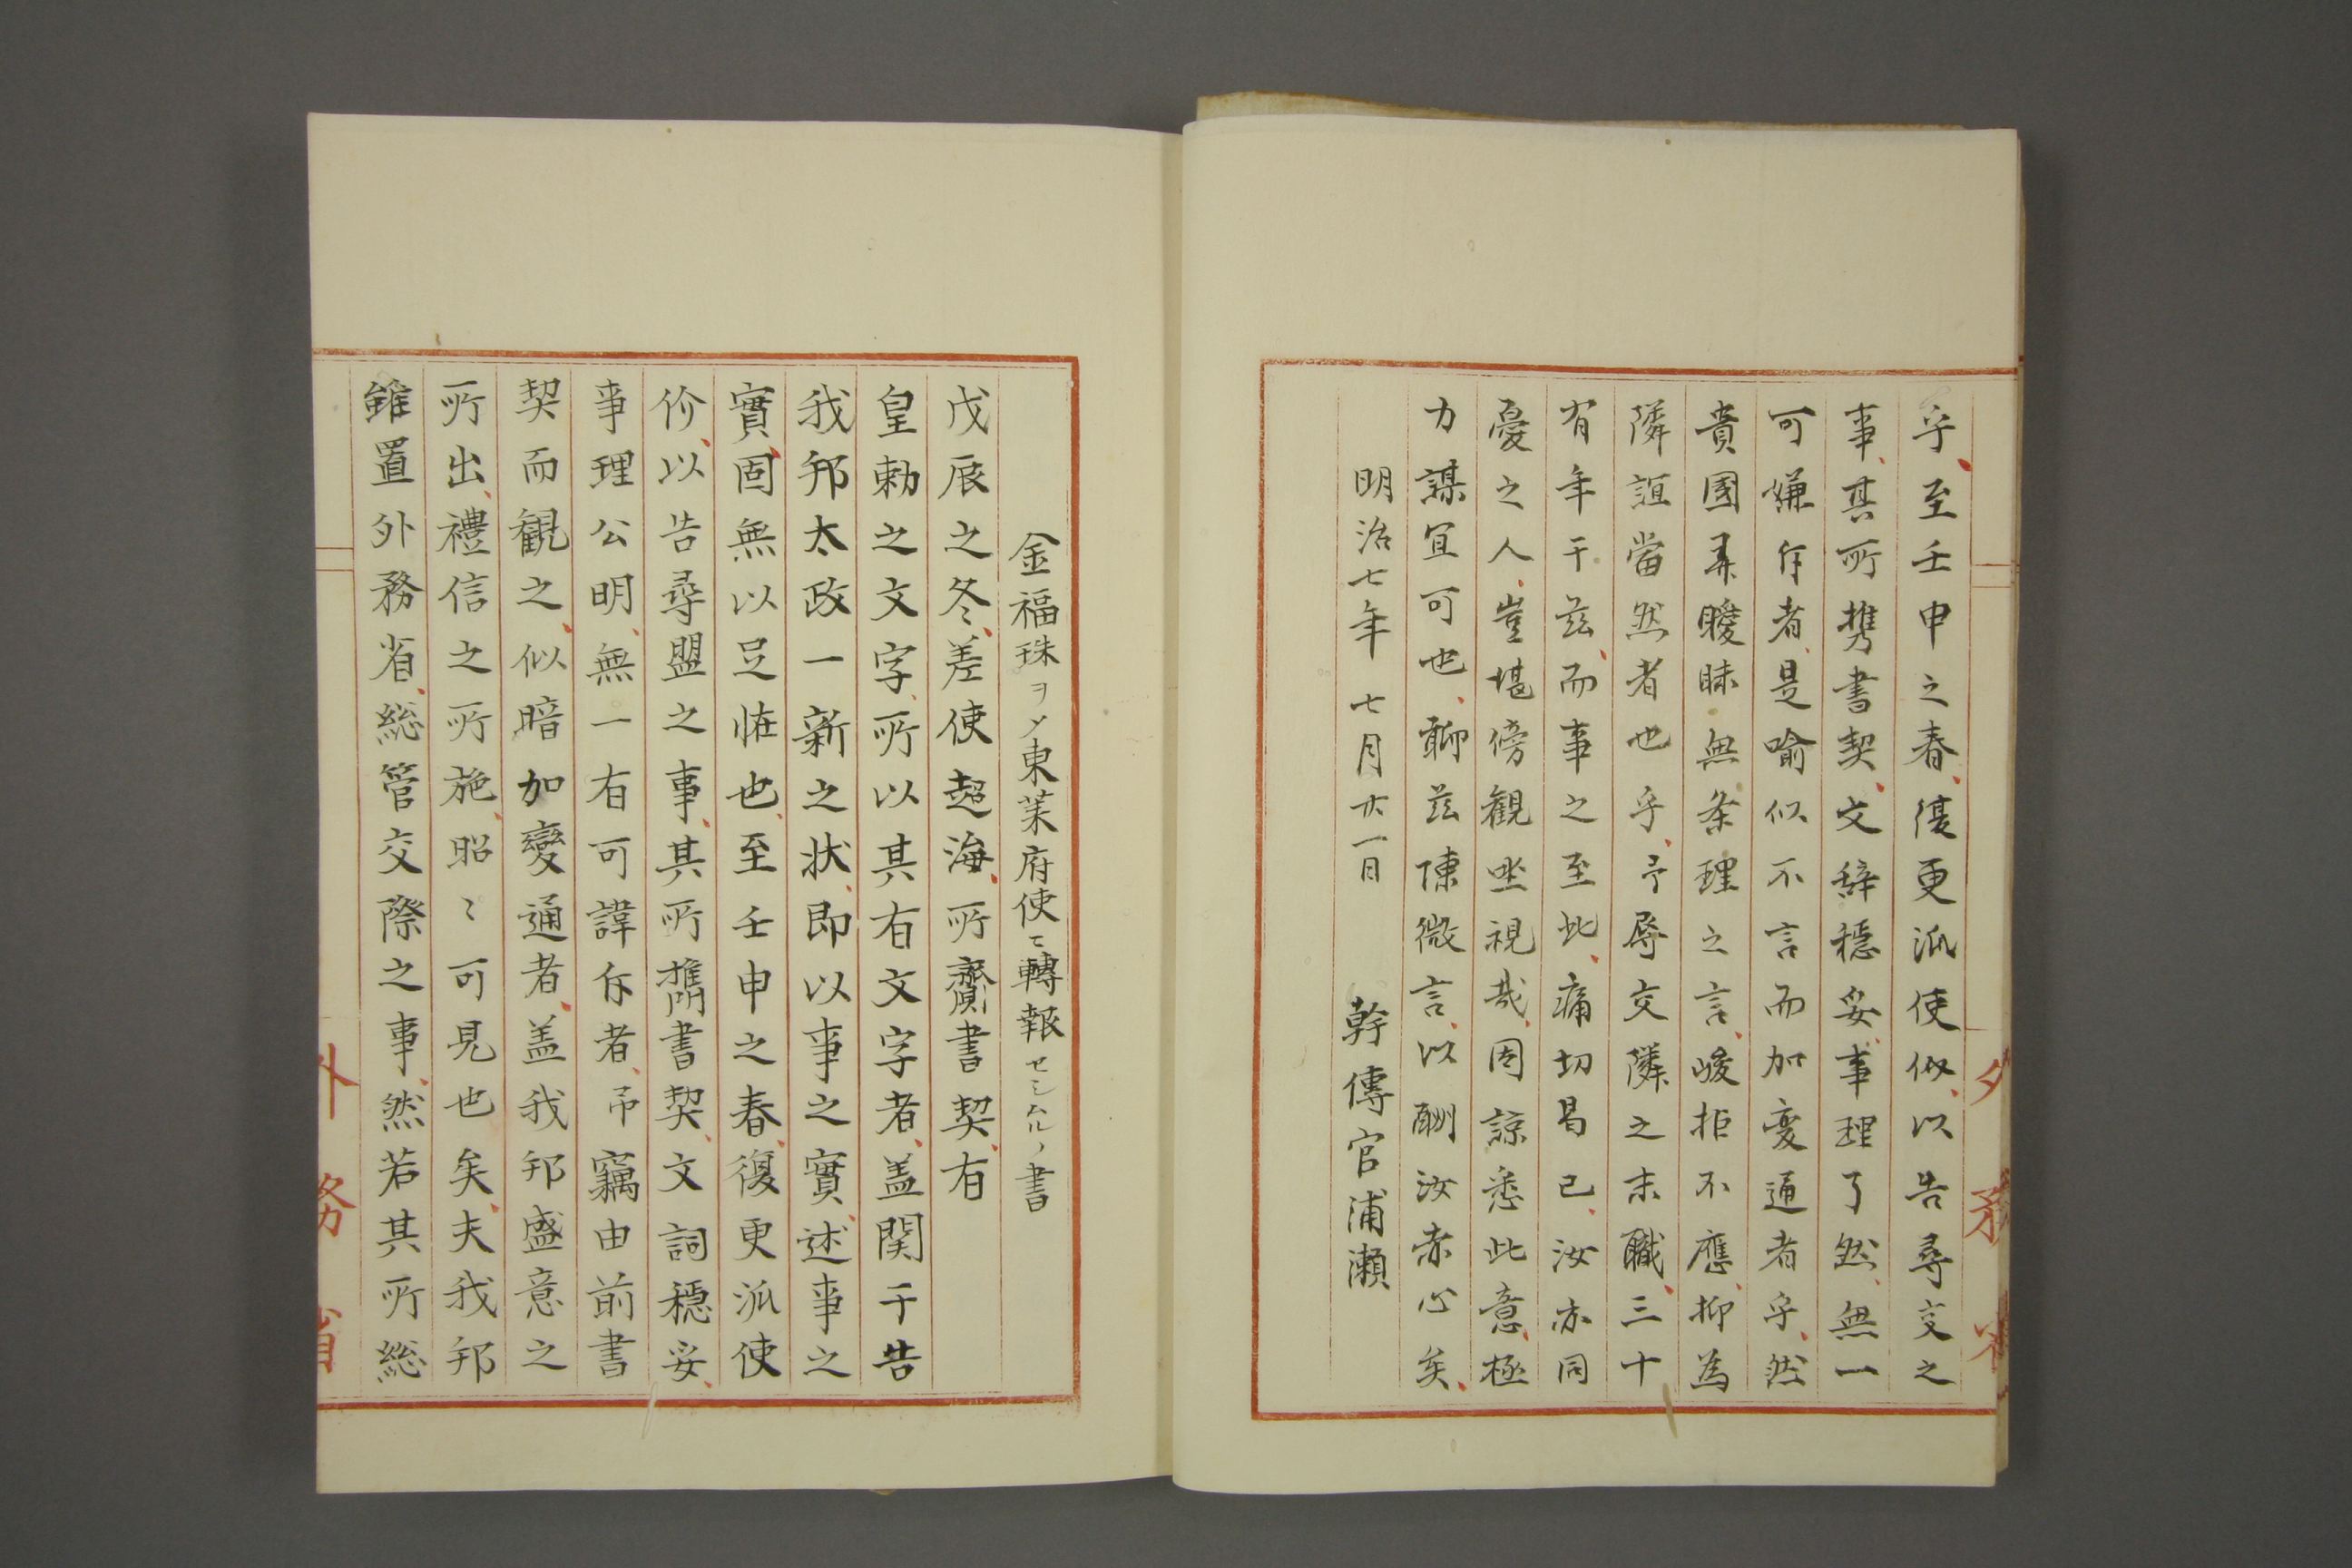 乎、至壬申之春、復更派使价、以告尋交之
事、其所携書契、文辞穏妥、事理了然、無一
可嫌斥者、是喩似不言而加変通者乎、然
貴國弄曖昧無条理之言、峻拒不應、抑為
隣誼當然者也乎、予辱交隣之末職、三十
有年于茲、而事之至此、痛切曷已、汝亦同
憂之人、豈堪傍観坐視哉、固諒悉此意、極
力謀宜可也、聊茲陳微言、以酬汝赤心矣、
明治七年七月廿一日　幹傳官浦瀬
金福珠ヲメ東莱府使ニ轉報セシムルノ書
戊辰之冬、差使超海、所齎書契、有
皇勅之文字、所以其有文字者、盖関于告
我邦太政一新之状、即以事之實、述事之
實、固無以足怪也、至壬申之春、復更派使
价、以告尋盟之事、其所携書契、文詞穏妥、
事理公明、無一有可諱斥者、帀竊由前書
契而観之、似暗加變通者、盖我邦盛意之
所出、禮信之所施、昭〻可見也矣、夫我邦
雖置外務省、総管交際之事、然若其所総
外務省